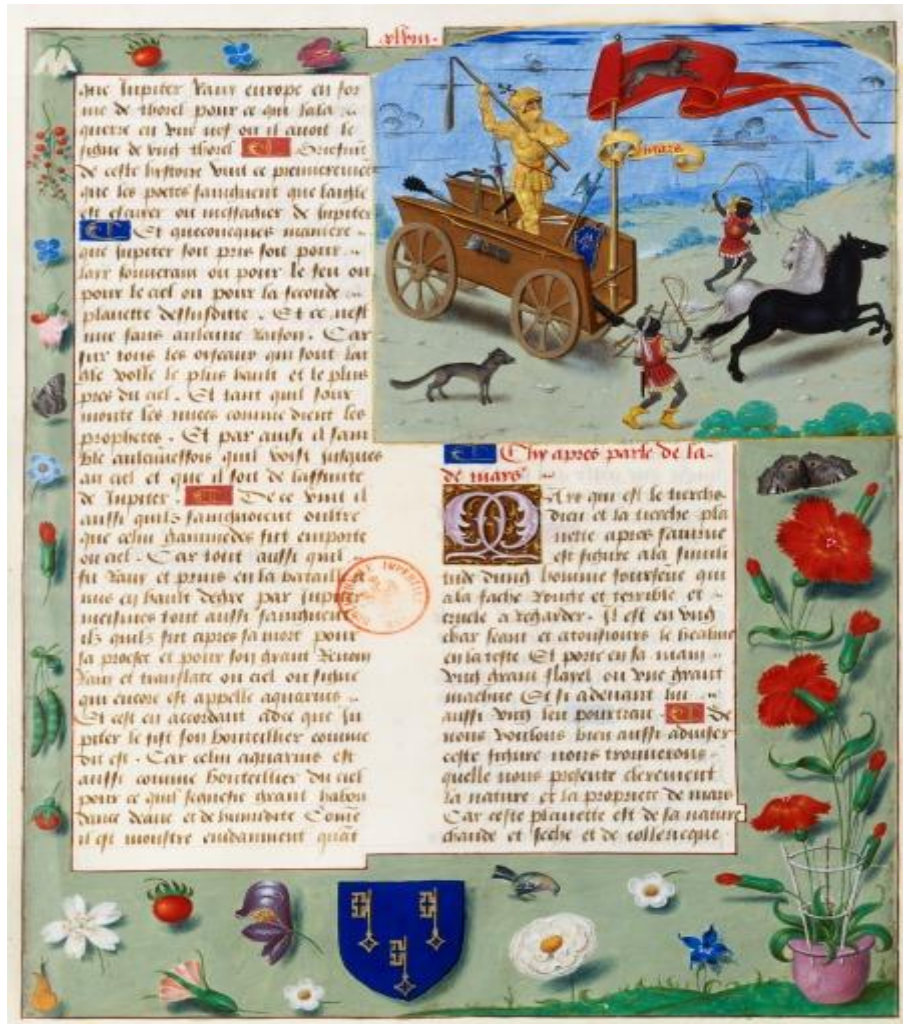 xlviii.
que Jupiter Ravy europe en for
me de thorel pour ce quil lala
querre en une nef ou il avoit le
signe de ung thorel
de ceste hystoire premierement
que les poetes faingnent que laigle
est escuier ou messagier de Jupiter
Et quecunques maniere
que Jupiter soit pris soit pour
lair souverain ou pour le feu ou
pour le ciel ou pour la seconde
planette dessusditte . Et ce nest
mie sans aulcune Raison . Car
sur tous les oyseaux qui sont lai
gle volle le plus hault et le plus
pres du ciel . Et tant quil sour
monte les nuees comme dient les
prophetes . Et par ainsi il sam
ble aulcuneffois quil voist jusques
au ciel et que il soit de laffinite
de Jupiter . De ce vint il
aussi quilz faingnoient oultre
que celui ganimedes fut emporte
ou ciel . Car tout aussi quil
fu Ravy et prins en la bataille
mis en hault degre par Jupiter
meismes tout aussi faingnent
ilz quil fut apres sa mort pour
sa proesse et pour son grant Renom
Ravy et translate ou ciel ou signe
qui encore est appelle aquarius
Et cest en accordant adce que Ju
piter le fist son bouteillier comme
dit est . Car celui aquarius est
aussi comme bouteillier du ciel
pour ce quil signefie grant habon
dance deaue et de humidite Come
il est monstre evidamment quat
mars
Chy apres parle de la
de mars
Mars qui est le tierch
dieu et la tierche pla
nette apres saturne
est figure a la simili
tude dung homme foursene qui
a la fache Rouge et terrible et
cruele a regarder . Il est en ung
char seant et a tousjours le healme
en la teste Et porte en sa main
ung grant flayel ou une grant
machue Et si a devant lui
aussi ung leu pourtrait . Se
nous voulons bien aussi adviser
ceste figure nous trouverons
quelle nous presente clerement
la nature et la propriete de mars
Car ceste planette est de sa nature
chaude et seche et de collericque